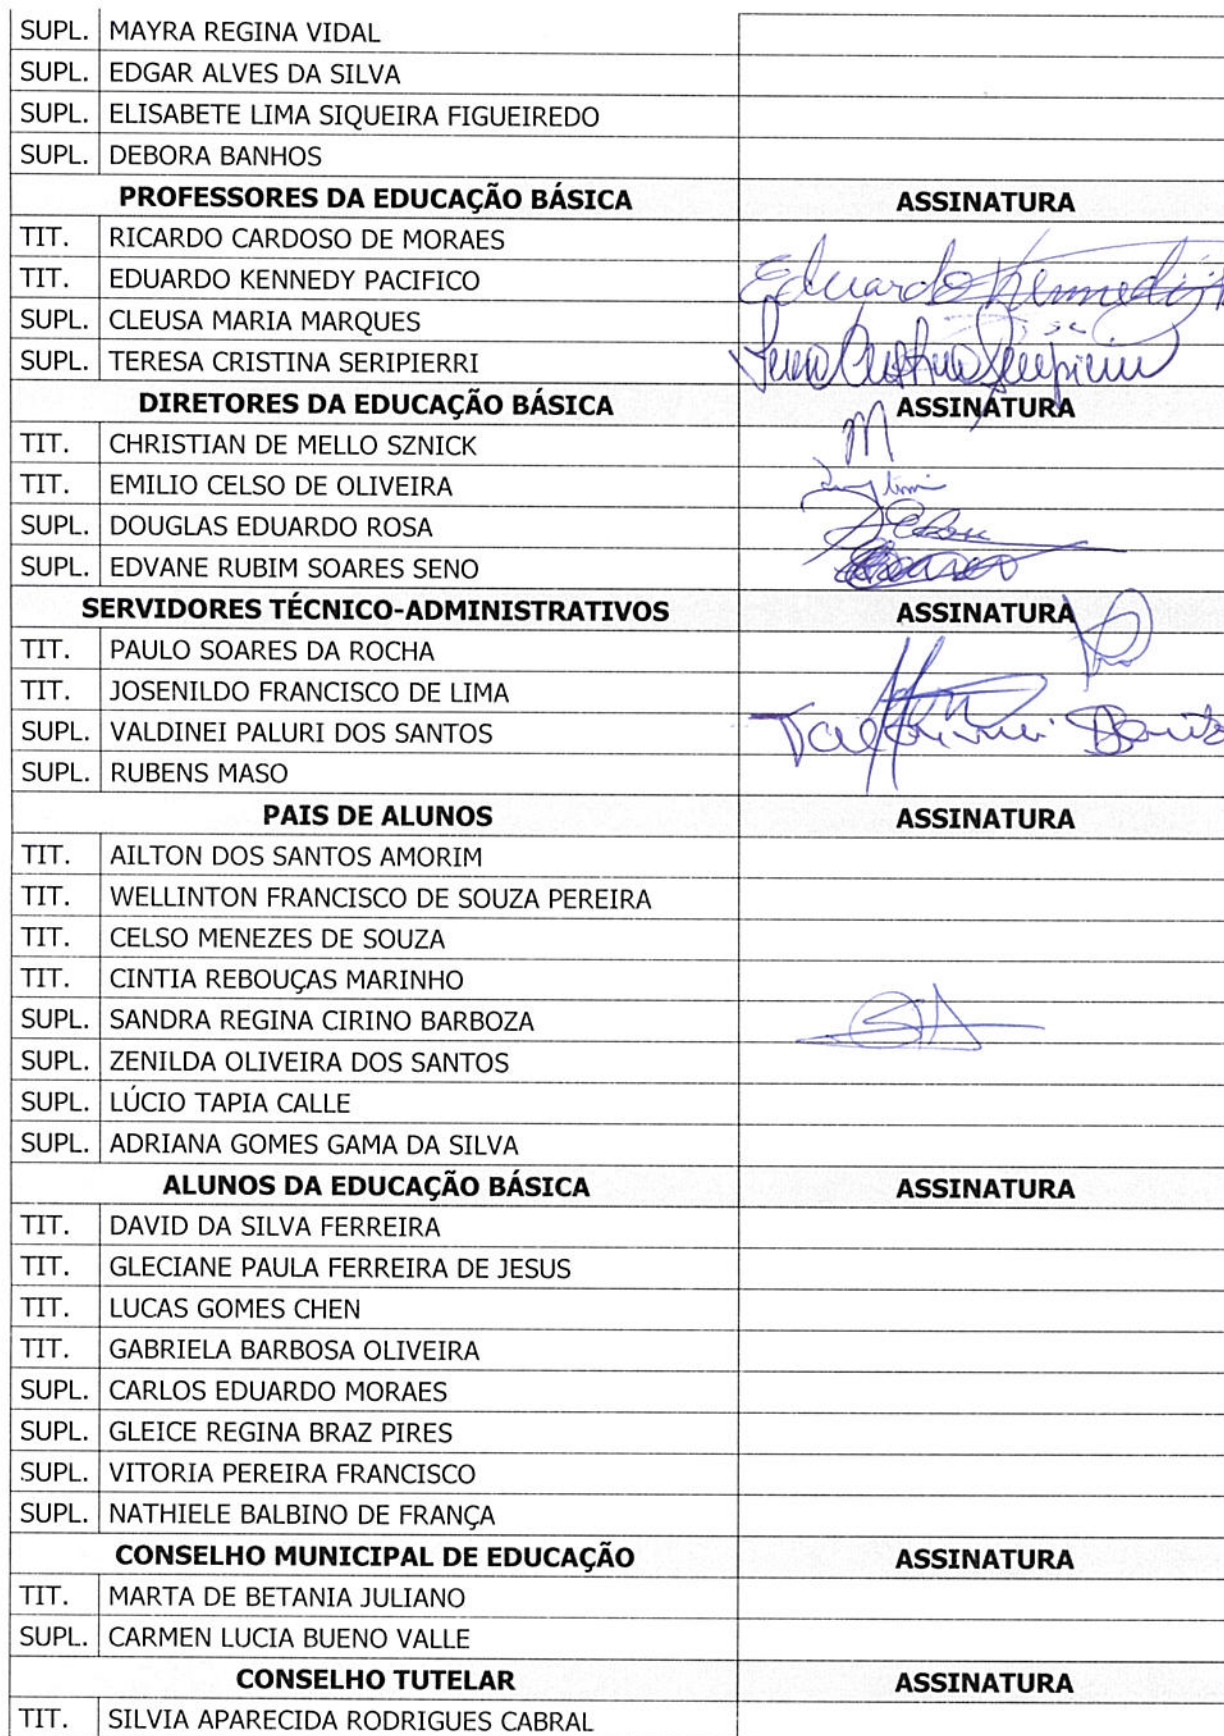 SUPL. MAYRA REGINA VIDAL
SUPL. EDGAR ALVES DA SILVA
SUPL. ELISABETE LIMA SIQUEIRA FIGUEIREDO
SUPL. DEBORA BANHOS
PROFESSORES DA EDUCAÇÃO BÁSICA ASSINATURA
TIT. RICARDO CARDOSO DE MORAES
TIT. EDUARDO KENNEDY PACIFICO Eduardo Kennedy
SUPL. CLEUSA MARIA MARQUES
SUPL. TERESA CRISTINA SERIPIERRI
DIRETORES DA EDUCAÇÃO BÁSICA ASSINATURA
TIT. CHRISTIAN DE MELLO SZNICK
TIT. EMILIO CELSO DE OLIVEIRA
SUPL. DOUGLAS EDUARDO ROSA
SUPL. EDVANE RUBIM SOARES SENO
SERVIDORES TÉCNICO-ADMINISTRATIVOS ASSINATURA
TIT. PAULO SOARES DA ROCHA
TIT. JOSENILDO FRANCISCO DE LIMA
SUPL. VALDINEI PALURI DOS SANTOS
SUPL. RUBENS MASO
PAIS DE ALUNOS ASSINATURA
TIT. AILTON DOS SANTOS AMORIM
TIT. WELLINTON FRANCISCO DE SOUZA PEREIRA
TIT. CELSO MENEZES DE SOUZA
TIT. CINTIA REBOUÇAS MARINHO
SUPL. SANDRA REGINA CIRINO BARBOZA
SUPL. ZENILDA OLIVEIRA DOS SANTOS
SUPL. LÚCIO TAPIA CALLE
SUPL. ADRIANA GOMES GAMA DA SILVA
ALUNOS DA EDUCAÇÃO BÁSICA ASSINATURA
TIT. DAVID DA SILVA FERREIRA
TIT. GLECIANE PAULA FERREIRA DE JESUS
TIT. LUCAS GOMES CHEN
TIT. GABRIELA BARBOSA OLIVEIRA
SUPL. CARLOS EDUARDO MORAES
SUPL. GLEICE REGINA BRAZ PIRES
SUPL. VITORIA PEREIRA FRANCISCO
SUPL. NATHIELE BALBINO DE FRANÇA
CONSELHO MUNICIPAL DE EDUCAÇÃO ASSINATURA
TIT. MARTA DE BETANIA JULIANO
SUPL. CARMEN LUCIA BUENO VALLE
CONSELHO TUTELAR ASSINATURA
TIT. SILVIA APARECIDA RODRIGUES CABRAL